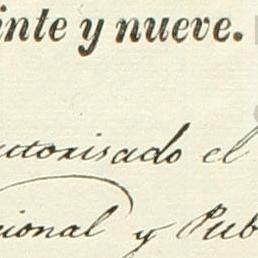 inte y nueve.
utorisado el
cional y Pub